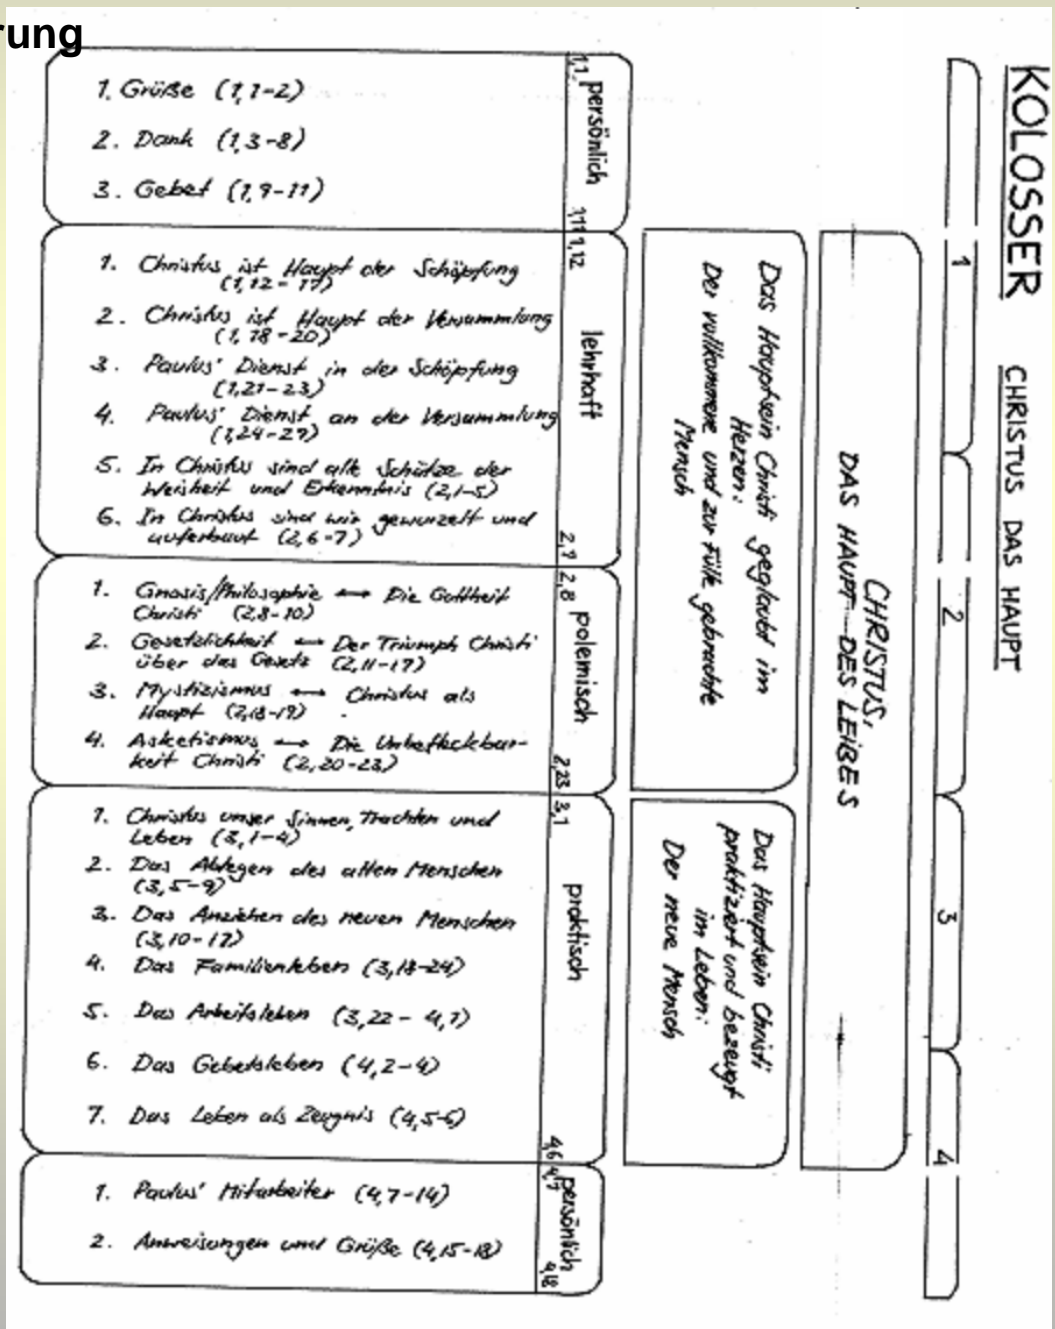 rung
KOLOSSER CHRISTUS DAS HAUPT
1
2
3
4
CHRISTUS,
DAS HAUPT DES LEIBES
Das Hauptsein Christi geglaubt im
Herzen:
Der vollkommene und zur Fülle gebrachte
Mensch
Das Hauptsein Christi
praktiziert und bezeugt
im Leben:
Der neue Mensch
1,1 persönlich 1,11
1. Grüße (1,1-2)
2. Dank (1,3-8)
3. Gebet (1,9-11)
1,12 lehrhaft 2,7
1. Christus ist Haupt der Schöpfung
(1,12-17)
2. Christus ist Haupt der Versammlung
(1,18-20)
3. Paulus' Dienst in der Schöpfung
(1,21-23)
4. Paulus' Dienst an der Versammlung
(1,24-29)
5. In Christus sind alle Schätze der
Weisheit und Erkenntnis (2,1-5)
6. In Christus sind wir gewurzelt und
auferbaut (2,6-7)
2,8 polemisch 2,23
1. Gnosis/Philosophie ↔ Die Gottheit
Christi (2,8-10)
2. Gesetzlichkeit ↔ Der Triumph Christi
über das Gesetz (2,11-17)
3. Mystizismus ↔ Christus als
Haupt (2,18-19)
4. Asketismus ↔ Die Unbefleckbar-
keit Christi (2,20-23)
3,1 praktisch 4,6
1. Christus unser Sinnen, Trachten und
Leben (3,1-4)
2. Das Ablegen des alten Menschen
(3,5-9)
3. Das Anziehen des neuen Menschen
(3,10-17)
4. Das Familienleben (3,18-24)
5. Das Arbeitsleben (3,22-4,1)
6. Das Gebetsleben (4,2-4)
7. Das Leben als Zeugnis (4,5-6)
4,7 persönlich 4,18
1. Paulus' Mitarbeiter (4,7-14)
2. Anweisungen und Grüße (4,15-18)